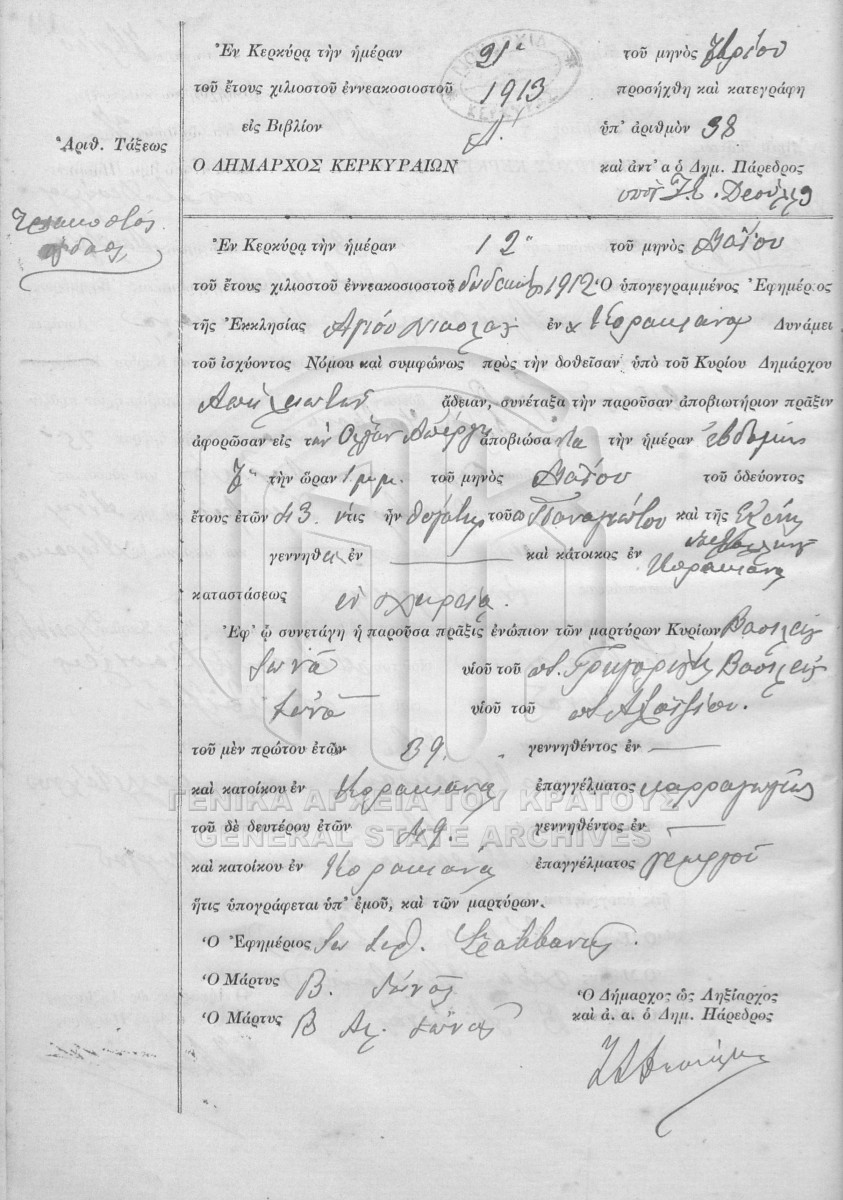 Ἐν Κερκύρᾳ τὴν ἡμέραν 21 τοῦ μηνὸς
τοῦ ἔτους χιλιοστοῦ ἐννεακοσιοστοῦ 1913 προσήχθη καὶ κατεγράφη
εἰς Βιβλίον ὑπ' ἀριθμὸν 38
Ἀριθ. Τάξεως
Ο ΔΗΜΑΡΧΟΣ ΚΕΡΚΥΡΑΙΩΝ καὶ ἀντ' α ὁ Δημ. Πάρεδρος
Ἐν Κερκύρᾳ τὴν ἡμέραν 12 τοῦ μηνὸς Μαΐου
τοῦ ἔτους χιλιοστοῦ ἐννεακοσιοστοῦ 1912 Ὁ ὑπογεγραμμένος Ἐφημέριος
τῆς Ἐκκλησίας Αγίου Νικολάου ἐν Κορακιάνα Δυνάμει
τοῦ ἰσχύοντος Νόμου καὶ συμφώνως πρὸς τὴν δοθεῖσαν ὑπὸ τοῦ Κυρίου Δημάρχου
ἄδειαν, συνέταξα τὴν παροῦσαν ἀποβιωτήριον πρᾶξιν
ἀφορῶσαν εἰς τὴν ἀποβιώσα τὴν ἡμέραν ἑβδόμην
7 τὴν ὥραν 1 μ.μ. τοῦ μηνὸς Μαΐου τοῦ ὁδεύοντος
ἔτους ἐτῶν 43 ἥτις ἦν θυγάτηρ τοῦ Παναγιώτου καὶ τῆς Ελένης
γεννηθεῖσα ἐν καὶ κάτοικος ἐν Κορακιάνα
καταστάσεως ἐν χηρείᾳ.
Ἐφ' ᾧ συνετάγη ἡ παροῦσα πρᾶξις ἐνώπιον τῶν μαρτύρων Κυρίων Βασιλείου
Ιωνᾶ υἱοῦ τοῦ π. Γρηγορίου & Βασιλείου
Ιωνᾶ υἱοῦ τοῦ π. Αλοϊζίου.
τοῦ μὲν πρώτου ἐτῶν 39. γεννηθέντος ἐν
καὶ κατοίκου ἐν Κορακιάνα ἐπαγγέλματος καρραγωγέως
τοῦ δὲ δευτέρου ἐτῶν 49. γεννηθέντος ἐν
καὶ κατοίκου ἐν Κορακιάνα ἐπαγγέλματος γεωργοῦ
ἥτις ὑπογράφεται ὑπ' ἐμοῦ, καὶ τῶν μαρτύρων.
Ὁ Ἐφημέριος
Ὁ Μάρτυς Β. Ιωνᾶς
Ὁ Μάρτυς Β Αλ. Ιωνᾶς
Ὁ Δήμαρχος ὡς Ληξίαρχος
καὶ ἀ. α. ὁ Δημ. Πάρεδρος
ΓΕΝΙΚΑ ΑΡΧΕΙΑ ΤΟΥ ΚΡΑΤΟΥΣ
GENERAL STATE ARCHIVES